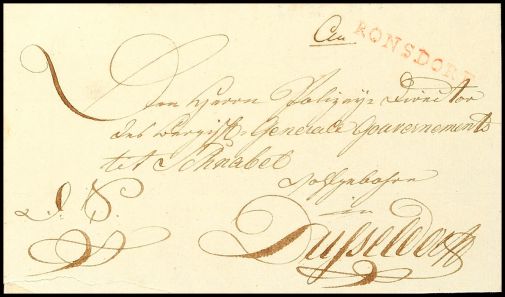 An
RONSDORF
Den Herrn Polizey-Director
des Bergisch-Generale Gouvernements
Schnabel
Wohlgebohrn
in
Düsseldorff